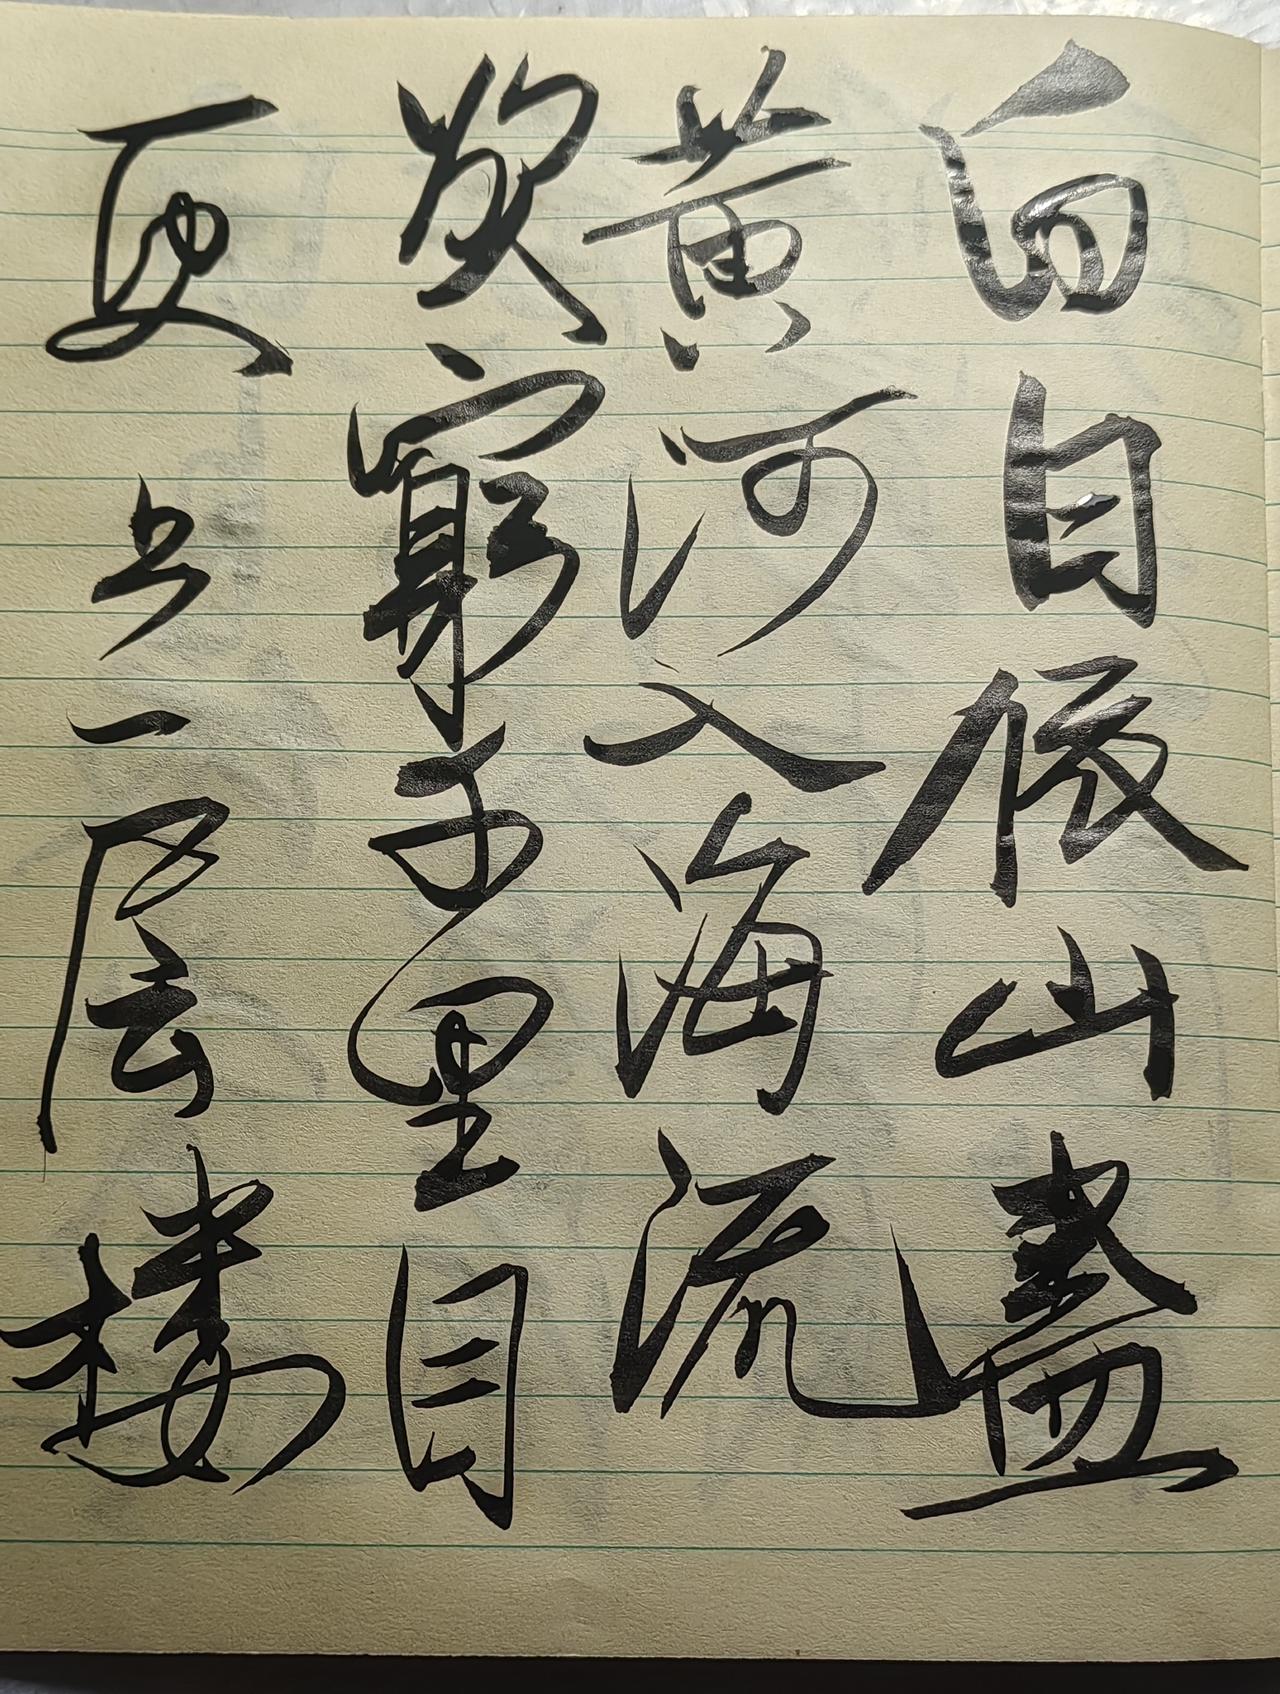 白日依山盡
黄河入海流
欲窮千里目
更上一层楼